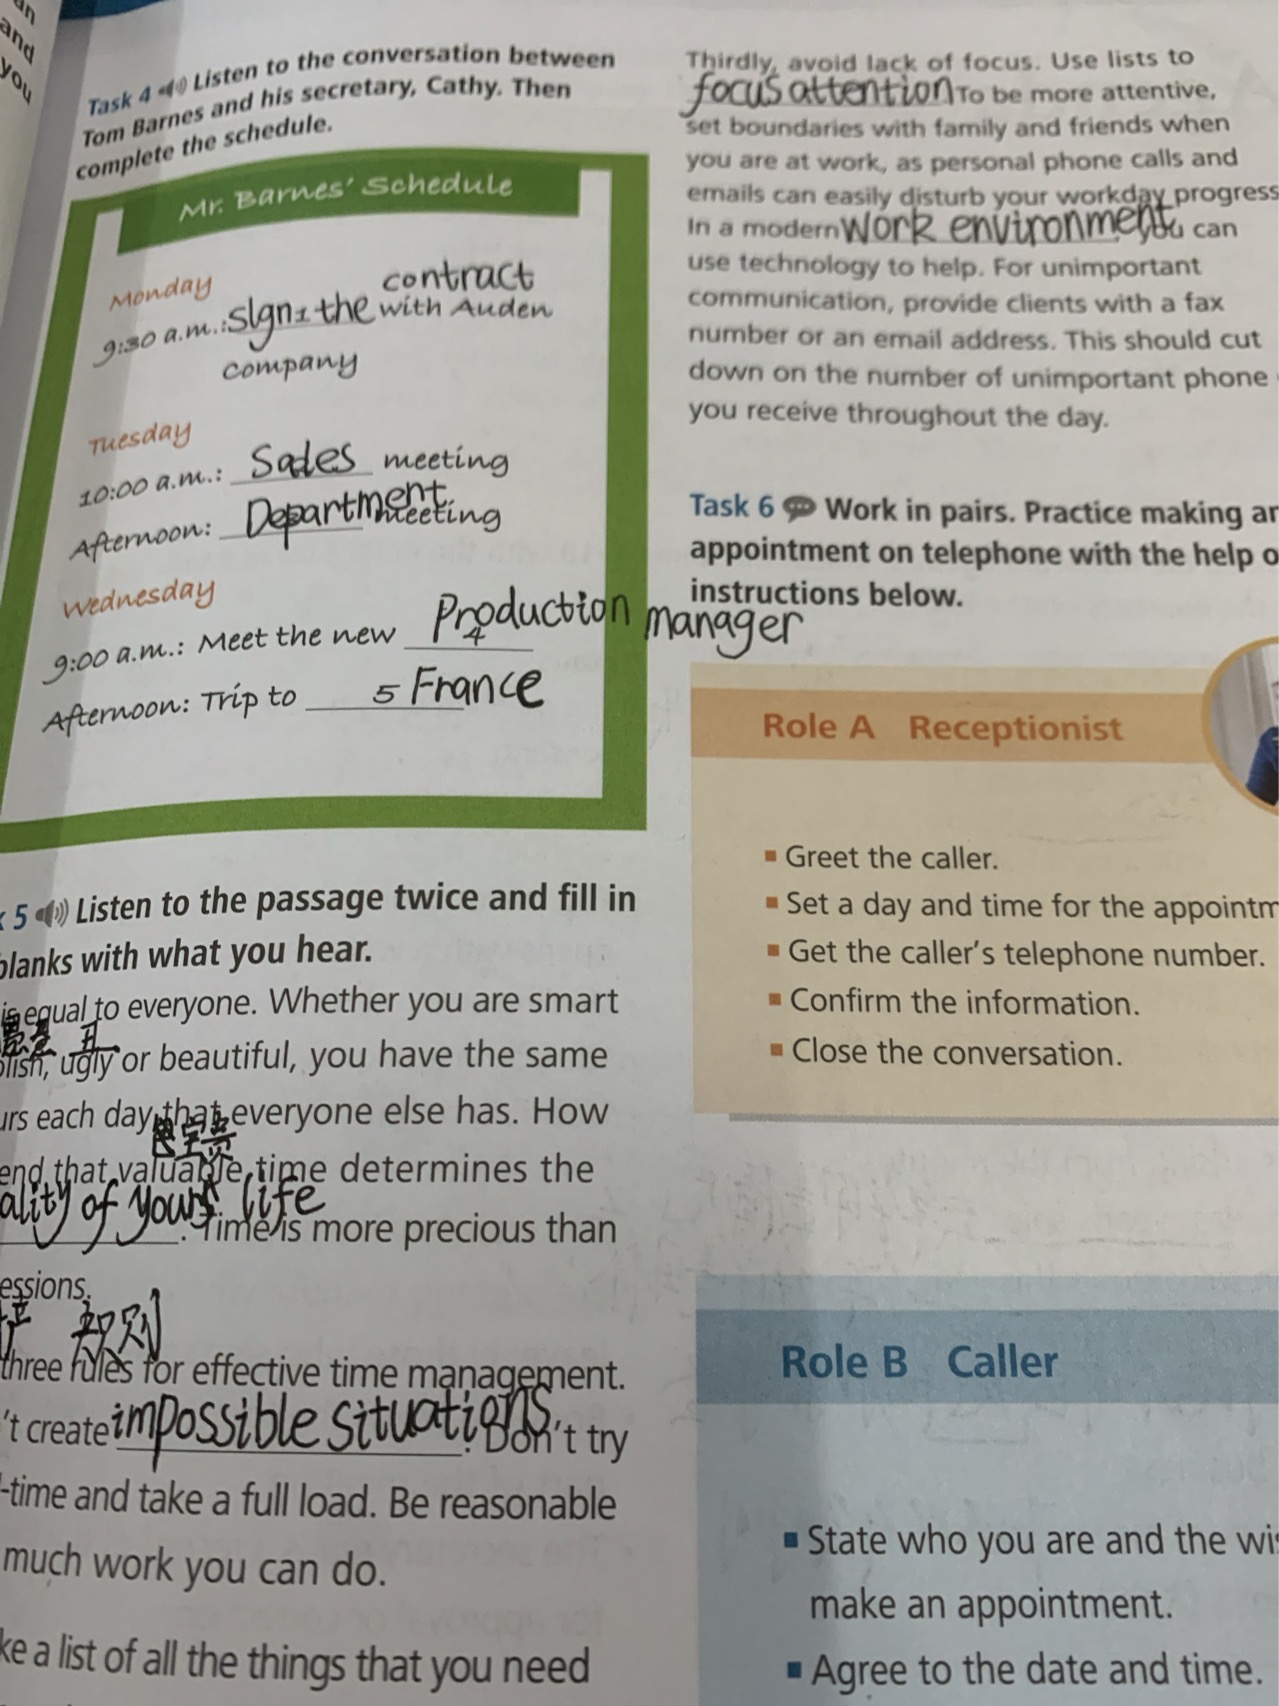 an
and
you
Task 4 Listen to the conversation between
Tom Barnes and his secretary, Cathy. Then
complete the schedule.
Mr. Barnes' Schedule
Monday
contract
9:30 a.m.: sign the with Auden
company
Tuesday
10:00 a.m.: Sales meeting
Afternoon: Department meeting
Wednesday
9:00 a.m.: Meet the new 4 Production manager
Afternoon: Trip to 5 France
5 Listen to the passage twice and fill in
blanks with what you hear.
is equal to everyone. Whether you are smart
愚蠢 丑
olish, ugly or beautiful, you have the same
urs each day that everyone else has. How
宝贵
end that valuable time determines the
ality of your life
. Time is more precious than
essions.
规则
three rules for effective time management.
't create impossible situations. Don't try
-time and take a full load. Be reasonable
much work you can do.
ke a list of all the things that you need
Thirdly, avoid lack of focus. Use lists to
focus attention To be more attentive,
set boundaries with family and friends when
you are at work, as personal phone calls and
emails can easily disturb your workday progress
In a modern work environment you can
use technology to help. For unimportant
communication, provide clients with a fax
number or an email address. This should cut
down on the number of unimportant phone
you receive throughout the day.
Task 6 Work in pairs. Practice making an
appointment on telephone with the help o
instructions below.
Role A Receptionist
Greet the caller.
Set a day and time for the appointm
Get the caller's telephone number.
Confirm the information.
Close the conversation.
Role B Caller
State who you are and the wis
make an appointment.
Agree to the date and time.